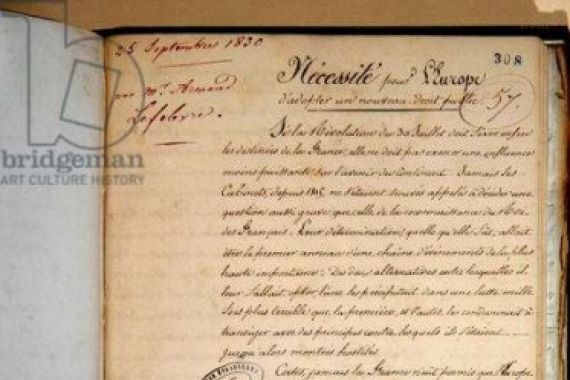 25 Septembres 1830
par Mr. Armand
Lefebvre.
308
57.
Nécessité pour L'Europe
d'adopter un nouveau droit public.
Si la Révolution du 30 Juillet doit fixer enfin
les destinées de la France, elle ne doit pas exercer une influence
moins puissante sur l'avenir du Continent. Jamais les
Cabinets, depuis 1815, ne s'étaient trouvés appelés à décider une
question aussi grave que celle de la reconnaissance du Roi
des Français. Leur détermination, quelle qu'elle fût, allait
être le premier anneau d'une chaîne d'événements de la plus
haute importance: des deux alternatives entre lesquelles il
leur fallait opter, l'une les précipitait dans une lutte mille
fois plus terrible que la première, et l'autre les condamnait à
transiger avec des principes contre lesquels ils s'étaient
jusqu'alors montrés hostiles.
Certes, jamais la France n'eût permis que l'Europe
bridgeman
ART CULTURE HISTORY